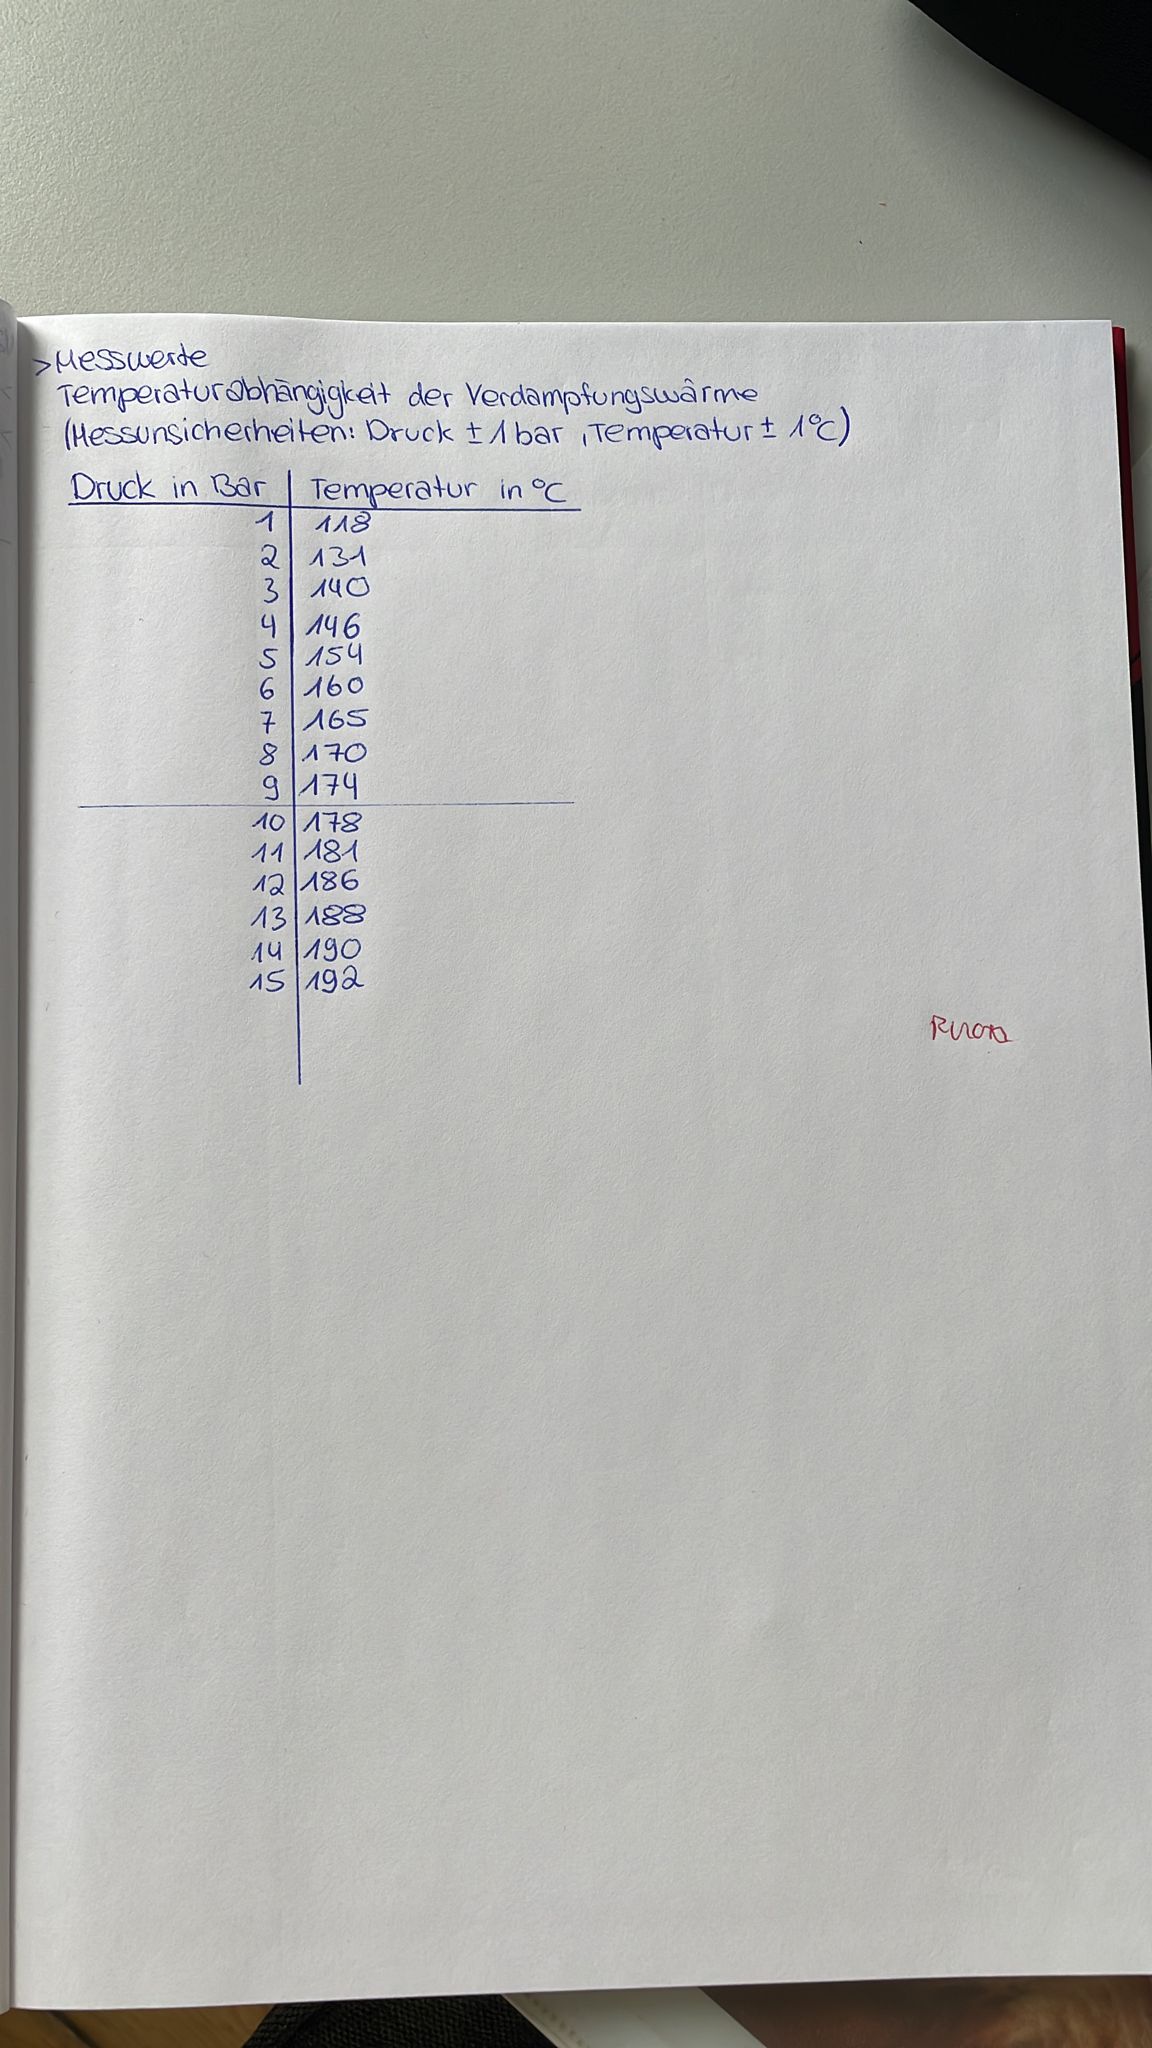 >Messwerte
Temperaturabhängigkeit der Verdampfungswärme
(Messunsicherheiten: Druck ± 1 bar, Temperatur ± 1°C)
Druck in Bar | Temperatur in °C
1 | 118
2 | 131
3 | 140
4 | 146
5 | 154
6 | 160
7 | 165
8 | 170
9 | 174
10 | 178
11 | 181
12 | 186
13 | 188
14 | 190
15 | 192